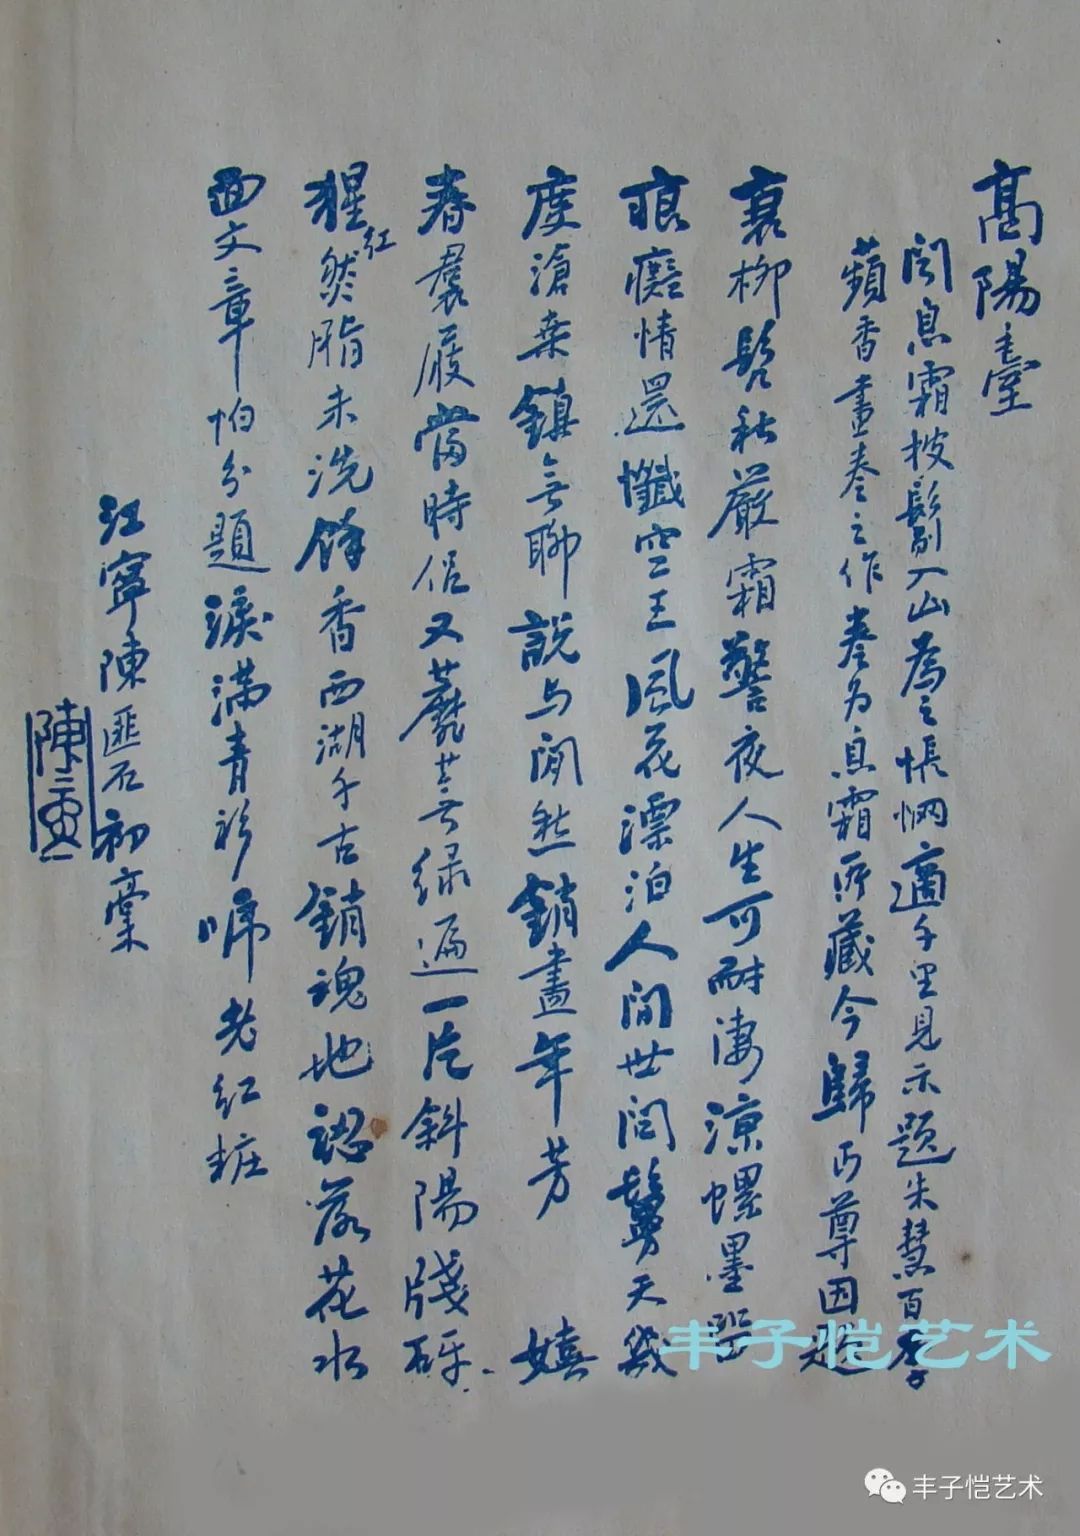 高陽臺
聞息霜披鬀入山為之悵惘適千里見示題朱慧百李
蘋香畫卷之作卷為息霜所藏今歸丏尊因題
衰柳髡秋嚴霜警夜人生可耐淒涼螺墨留
痕癡情還懺空王風花漂泊人間世問鬘天幾
度滄桒鎮無聊說与閒愁銷盡年芳 嬉
春羣屐當時侣又蘼蕪绿遍一片斜陽牋砑
猩红然脂未洗餘香西湖千古銷魂地認落花水
面文章怕分題淚滿青衫啼老红粧
江寧陳匪石初稾
陳
丰子恺艺术
丰子恺艺术